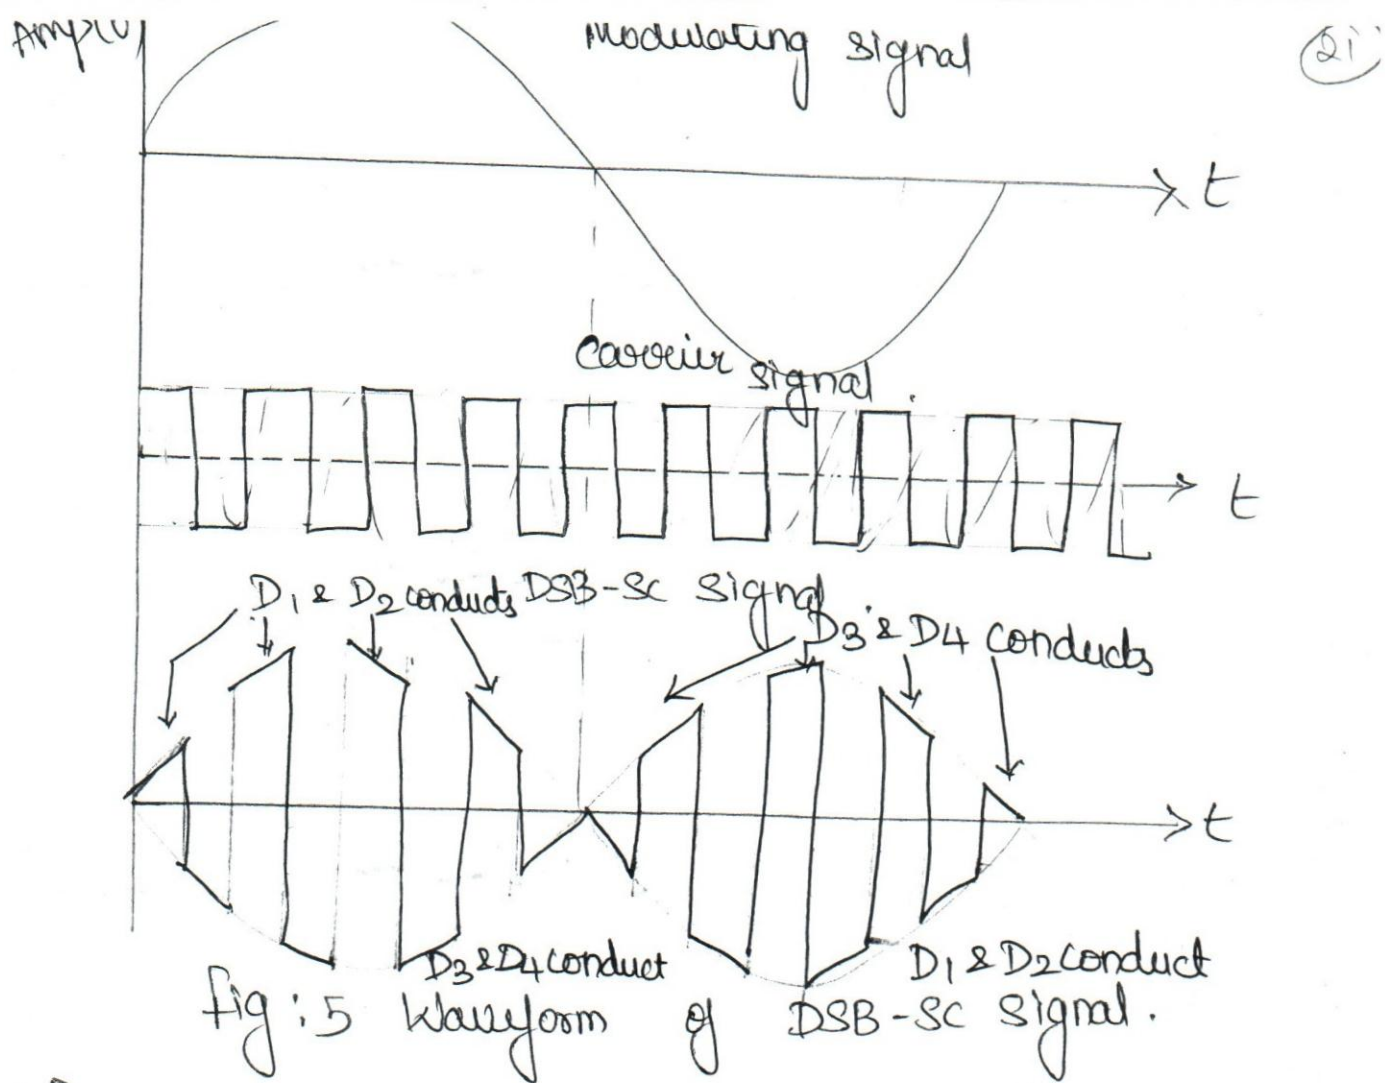 Modulating Signal
21
t
Carrier Signal.
t
D1 & D2 conducts DSB-SC Signal
D3 & D4 conducts
t
D3 & D4 conduct
D1 & D2 conduct
fig: 5 Waveform of DSB-SC Signal.